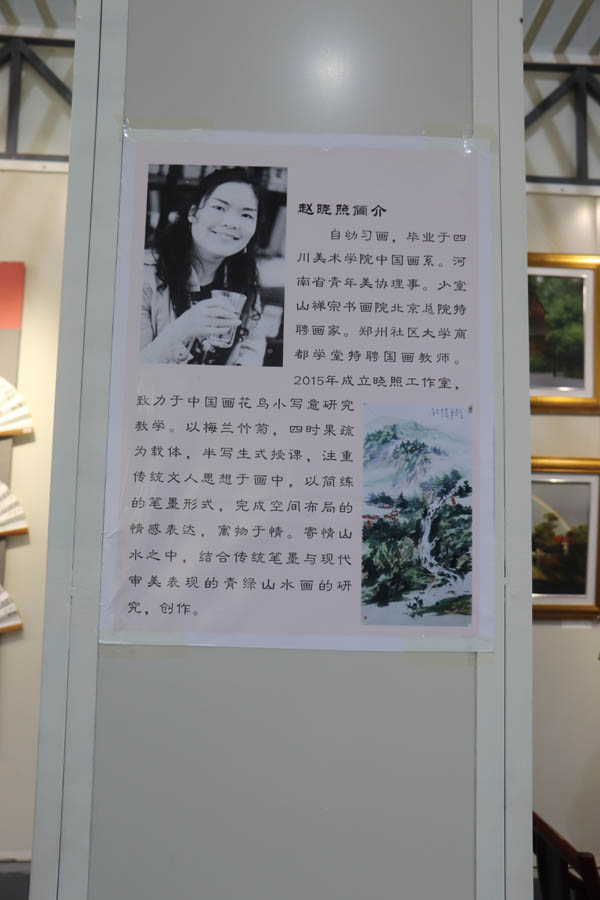 赵晓照简介
自幼习画，毕业于四
川美术学院中国画系。河
南省青年美协理事。少室
山禅宗书画院北京总院特
聘画家。郑州社区大学商
都学堂特聘国画教师。
2015年成立晓照工作室，
致力于中国画花鸟小写意研究
教学。以梅兰竹菊，四时果蔬
为载体，半写生式授课，注重
传统文人思想于画中，以简练
的笔墨形式，完成空间布局的
情感表达，寓物于情。寄情山
水之中，结合传统笔墨与现代
审美表现的青绿山水画的研
究，创作。